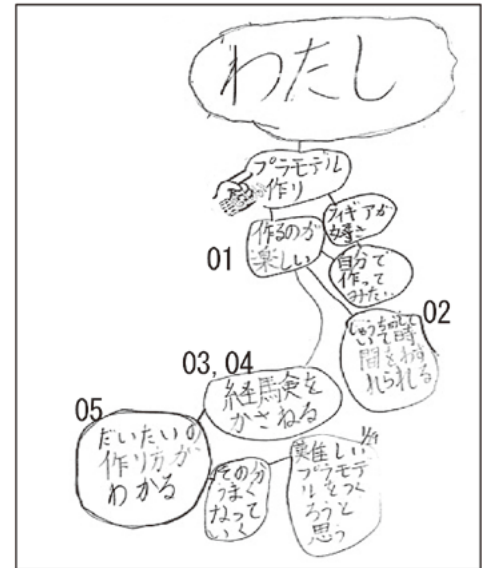 わたし
プラモデル
作り
フィギアが
好き
作るのが
楽しい
01
自分で
作って
みたい
02
しゅうちゅうして
いて時
間をわす
れられる
03, 04
経験を
かさねる
05
だいたいの
作り方が
わかる
その分
うまく
なって
いく
難しい
プラモデ
ルをつく
ろうと
思う